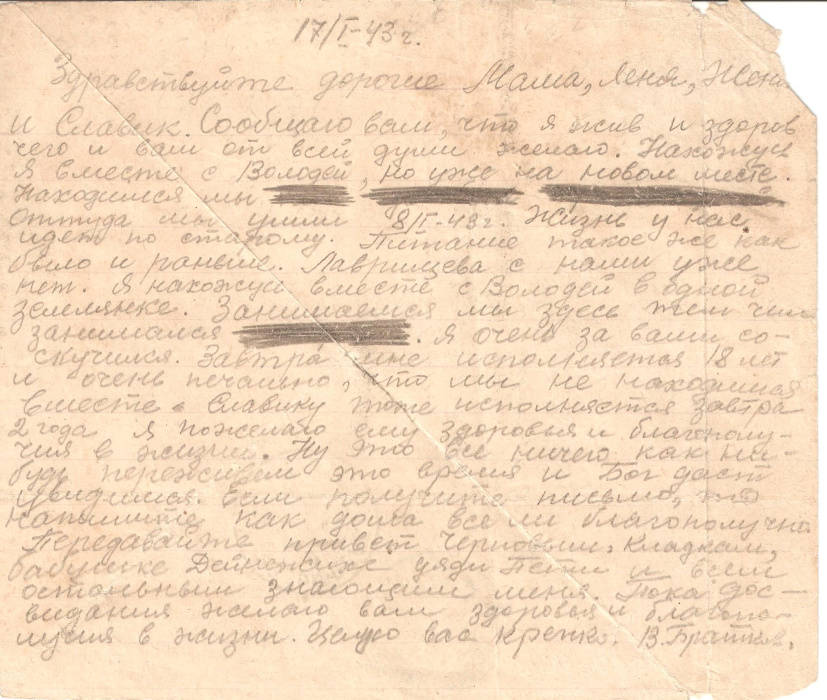 17/I-43 г.
Здравствуйте дорогие Мама, Леня, Женя
и Славик. Сообщаю вам, что я жив и здоров
чего и вам от всей души желаю. Нахожусь
я вместе с Володей, но уже на новом месте.
Находимся мы
оттуда мы ушли 8/I-43 г. Жизнь у нас
идет по старому. Питание такое же как
было и раньше. Лаврищева с нами уже
нет. Я нахожусь вместе с Володей в одной
землянке. Занимаемся мы здесь тем чем
занимался . Я очень за вами со-
скучился. Завтра мне исполняется 18 лет
и очень печально, что мы не находимся
вместе. Славику тоже исполняется завтра
2 года я пожелаю ему здоровья и благополу-
чия в жизни. Ну это все ничего как ни-
будь переживем это время и Бог даст
увидимся. Если получите письмо, то
напишите как дома все ли благополучно
Передавайте привет Черновым, Кладкам,
бабушке дяди Пети и всем
остальным знающим меня. Пока дос-
видания желаю вам здоровья и благопо-
лучия в жизни. Целую вас крепко. В.